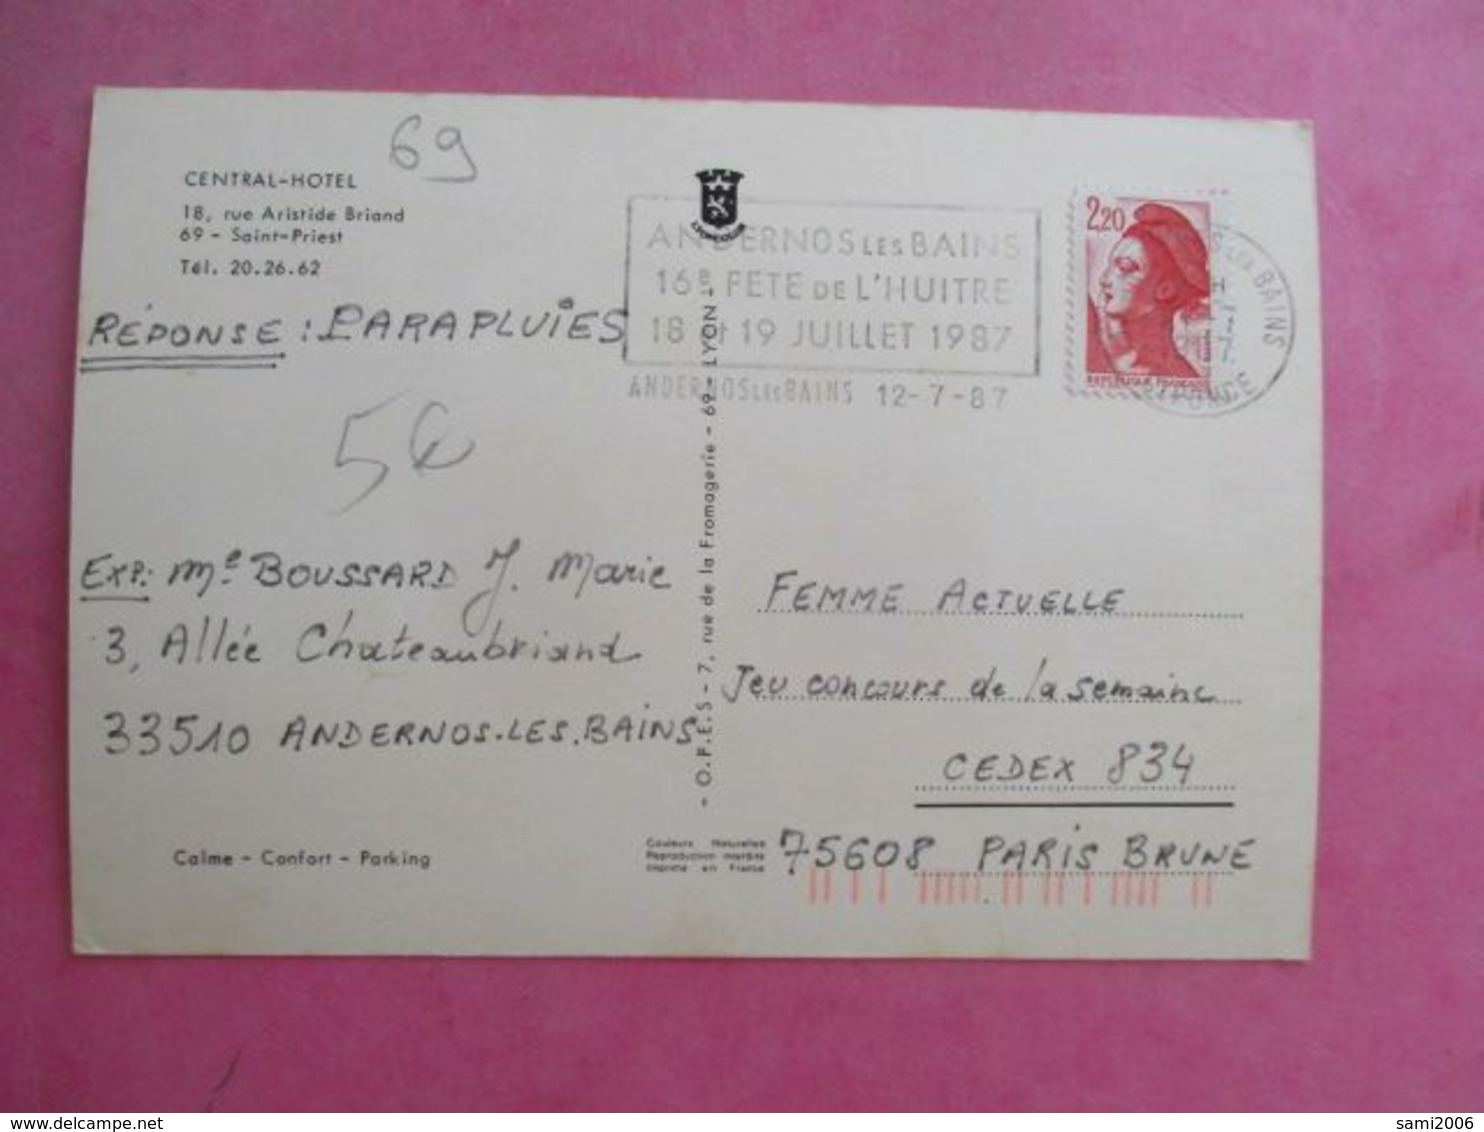 69
CENTRAL-HOTEL
18, rue Aristide Briand
69 - Saint-Priest
Tél. 20.26.62
RÉPONSE : PARAPLUIES
5€
EXP: Me BOUSSARD J. Marie
3, Allée Chateaubriand
33510 ANDERNOS.LES.BAINS
Calme - Confort - Parking
LYONCOLOR
- O.P.E.S - 7, rue de la Fromagerie - 69 - LYON -
Couleurs Naturelles
Reproduction interdite
Imprimé en France
ANDERNOS LES BAINS
16e FETE DE L'HUITRE
18 et 19 JUILLET 1987
ANDERNOS LES BAINS 12-7-87
2,20
REPUBLIQUE FRANÇAISE
BAINS
FEMME ACTUELLE
Jeu concours de la semaine
CEDEX 834
75608 PARIS BRUNE
sami2006